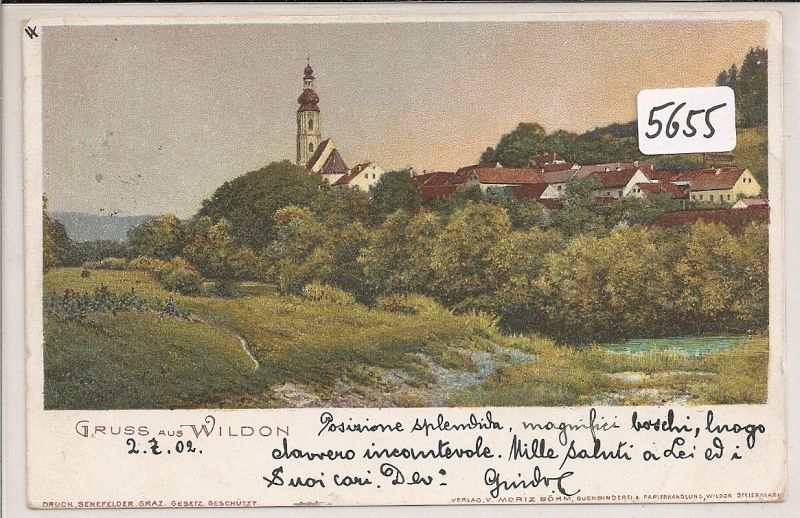 5655
GRUSS AUS WILDON
Posizione splendida, magnifici boschi, luogo
2.7.02.
davvero incantevole. Mille saluti a Lei ed i
Suoi cari. Dev:
DRUCK SENEFELDER GRAZ. GESETZ. GESCHÜTZT.
VERLAG V. MORIZ BÖHM, BUCHBINDEREI & PAPIERHANDLUNG, WILDON STEIERMARK